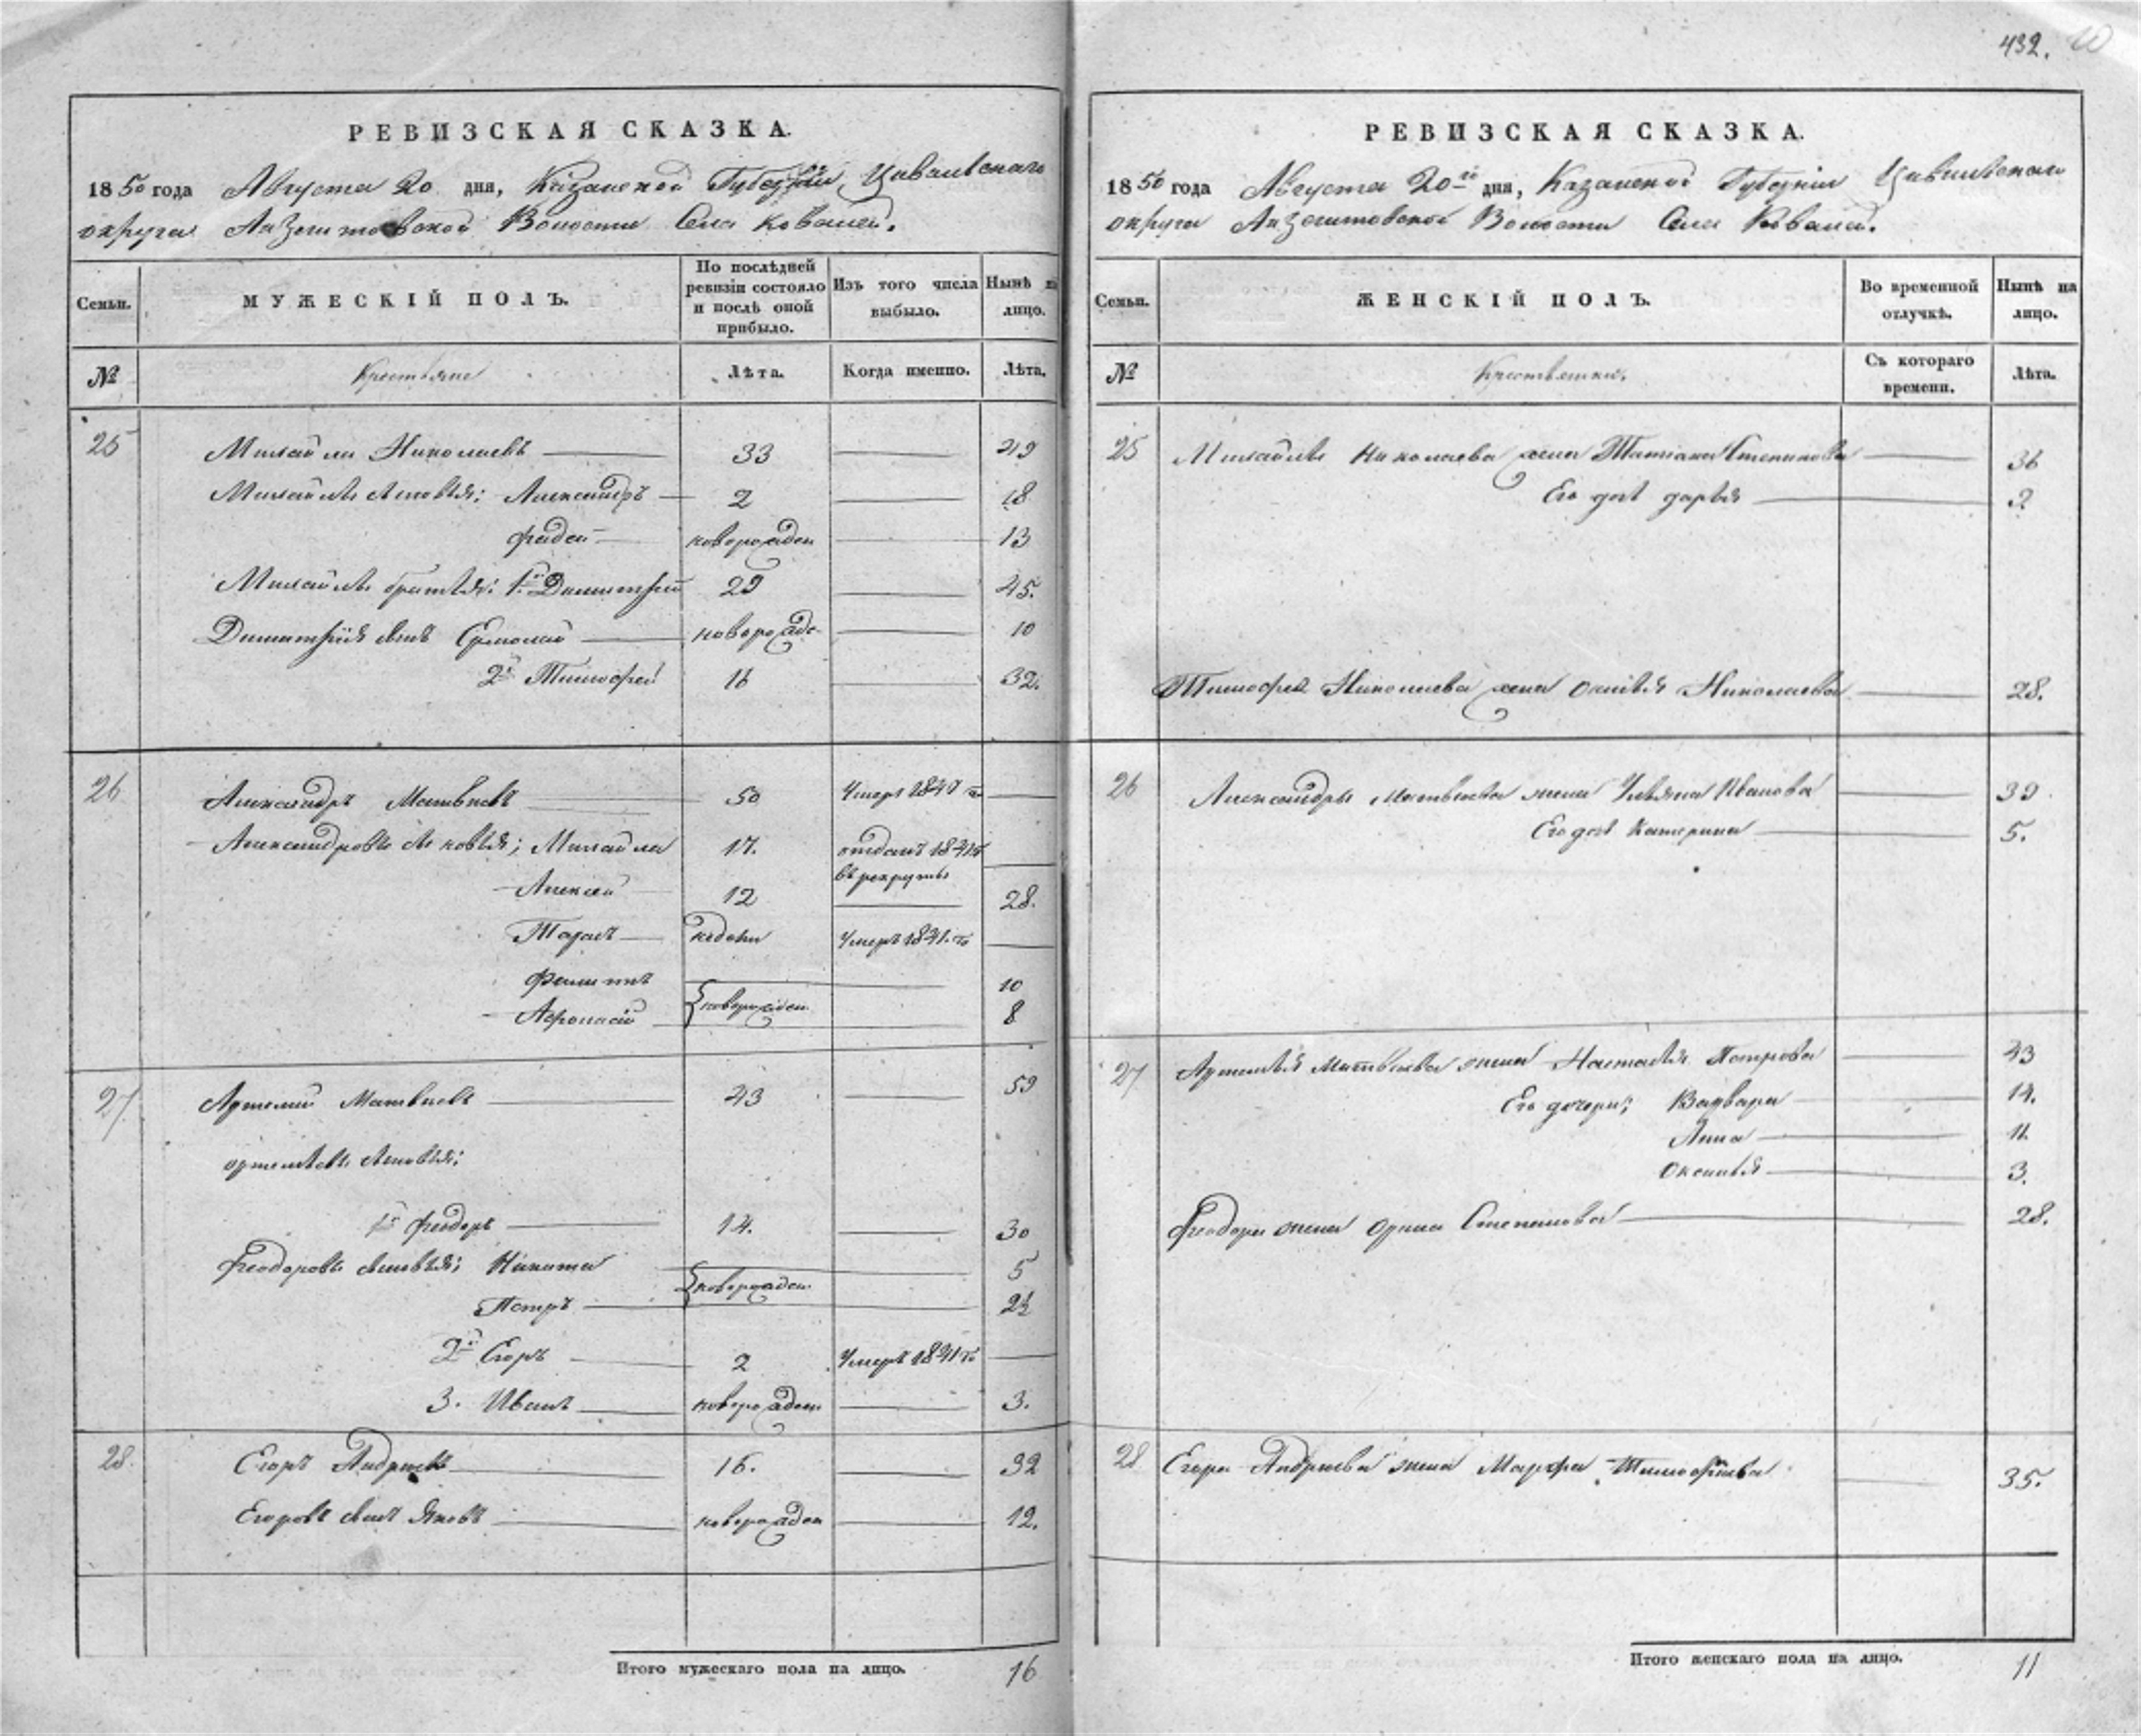 432.
РЕВИЗСКАЯ СКАЗКА.
1850 года Августа 20 дня, Казанской Губерніи Цивильскаго
округа Волости Села Ковалей.
Семьи.
МУЖЕСКІЙ ПОЛЪ.
По послѣдней ревизіи состояло и послѣ оной прибыло.
Изъ того числа выбыло.
Нынѣ на лицо.
№
Крестьяне
Лѣта.
Когда именно.
Лѣта.
25 Михайла Николаевъ 33 49
Михайлы сыновья; Александръ 2 18
Фадей новорожден 13
Михайлы братья: 1й Димитрій 29 45.
Димитрія сынъ Ермолай новорожде 10
2й Тимофей 16 32.
26 Александръ Матвѣевъ 50 Умеръ
Александровы сыновья; Михайла 17. отданъ 1841го
въ рекруты
Алексей 12 28.
Тарасъ недели Умеръ 1841.го
Филиппъ 10
{новорожден
Афонасій 8
27 Артемій Матвѣевъ 43 59
Артемьевы сыновья;
1й Феодоръ 14. 30
Феодоровы сыновья; Никита 5
{новорожден
Петръ 2½
2й Егоръ 2 Умеръ 1841го
3. Иванъ новорожден 3.
28. Егоръ Андреевъ 16. 32
Егоровъ сынъ Яковъ новорожден 12.
Итого мужескаго пола на лицо. 16
РЕВИЗСКАЯ СКАЗКА.
1850 года Августа 20го дня, Казанской Губерніи Цивильскаго
округа Волости Села Ковалей.
Семьи.
ЖЕНСКІЙ ПОЛЪ.
Во временной отлучкѣ.
Нынѣ на лицо.
№
Крестьянки.
Съ котораго времени.
Лѣта.
25 Михайлы Николаева жена Татіана Степанова 36
Его дочь Дарья
Тимофея Николаева жена Оксинья Николаева 28.
26 Александры Матвѣева жена Ульяна Иванова 39
Его дочь Катерина 5.
27 Артемья Матвѣева жена Настасья Петрова 43
Его дочери; Варвара 14.
Анна 11.
Оксинья 3.
Феодора жена Орина Степанова 28.
28 Егора Андреева жена Марфа Тимофеева 35.
Итого женскаго пола на лицо. 11